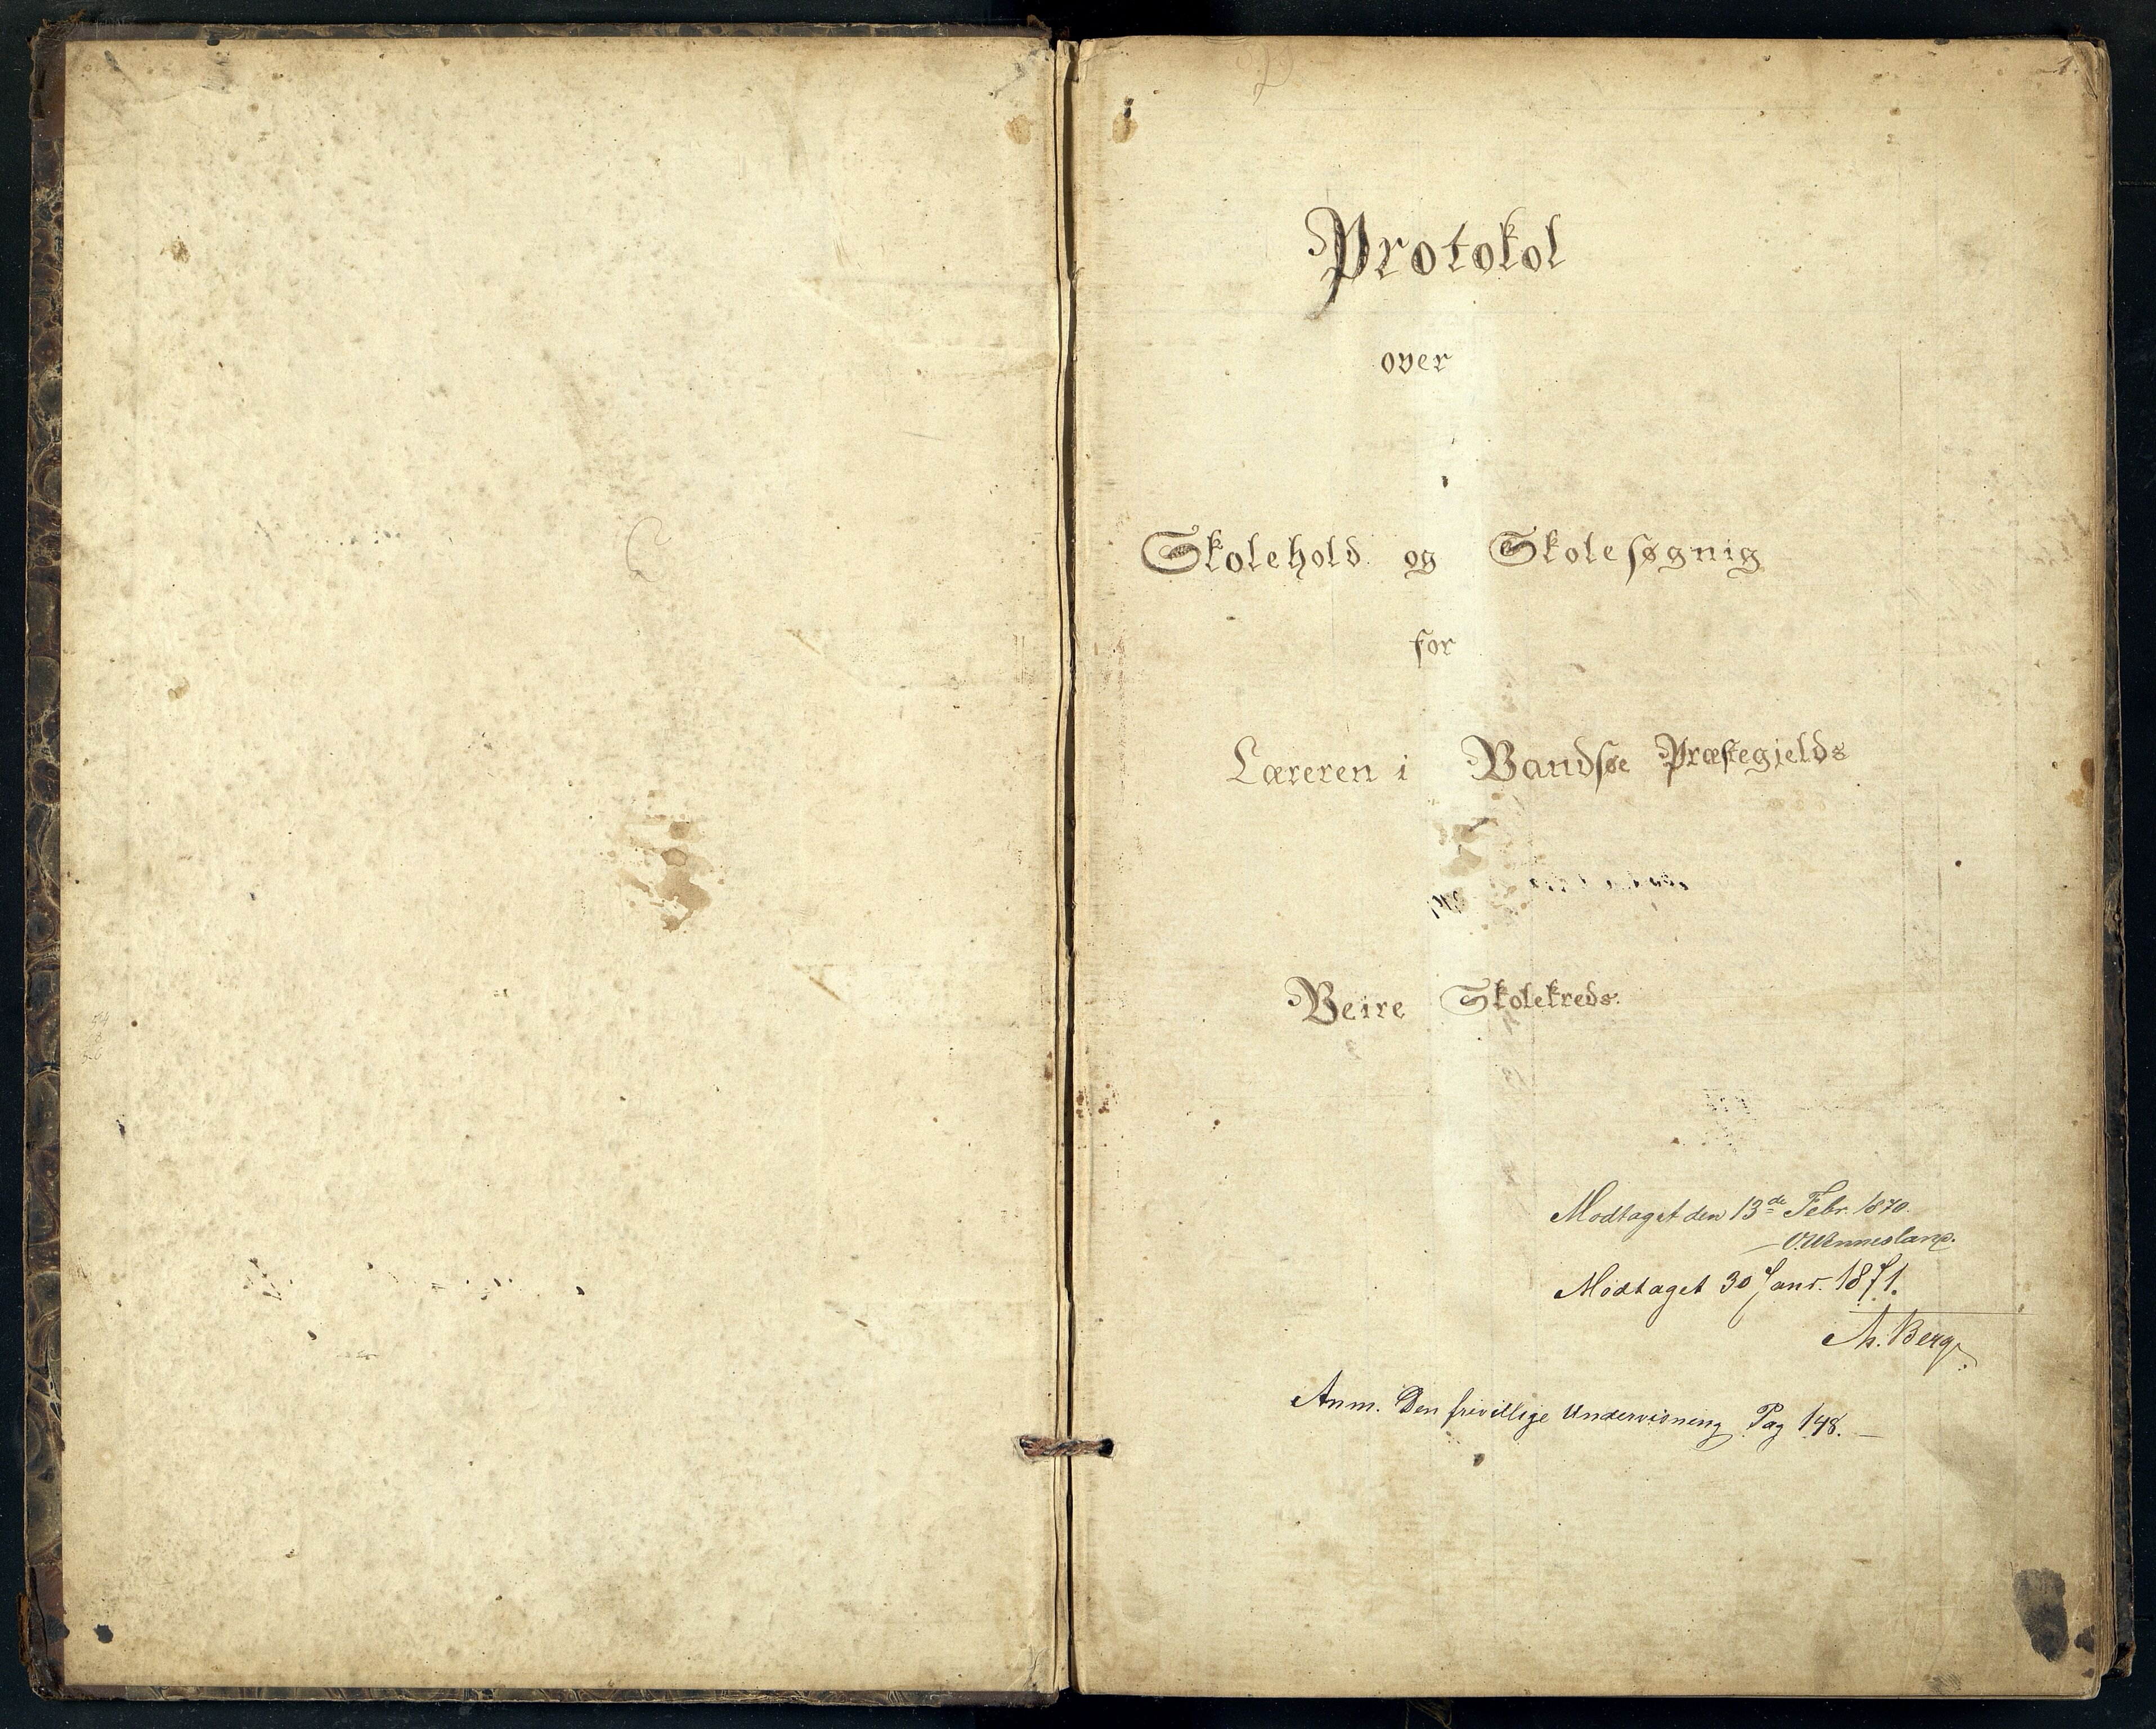 1.
Protokol
over
Skolehold og Skolesøgnig
for
Læreren i Vandsøe Præstegjelds
Veire Skolekreds.
Modtaget den 13de Febr. 1870.
O. Wennesland.
Modtaget 30 Janr. 1871.
Th. Berg
Anm. Den frivillige Undervisning Pag 148.